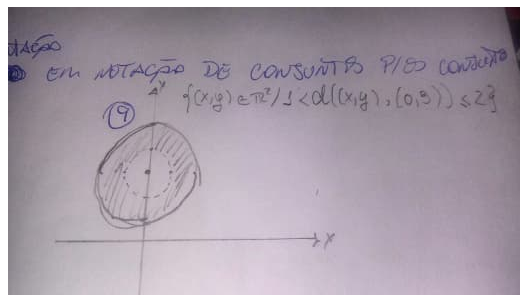 TAÇÃO
EM NOTAÇÃO DE CONJUNTOS P/ OS CONJUNTO
{(x,y) ∈ R²/1 < d((x,y),(0,3)) ≤ 2}
y
9
x